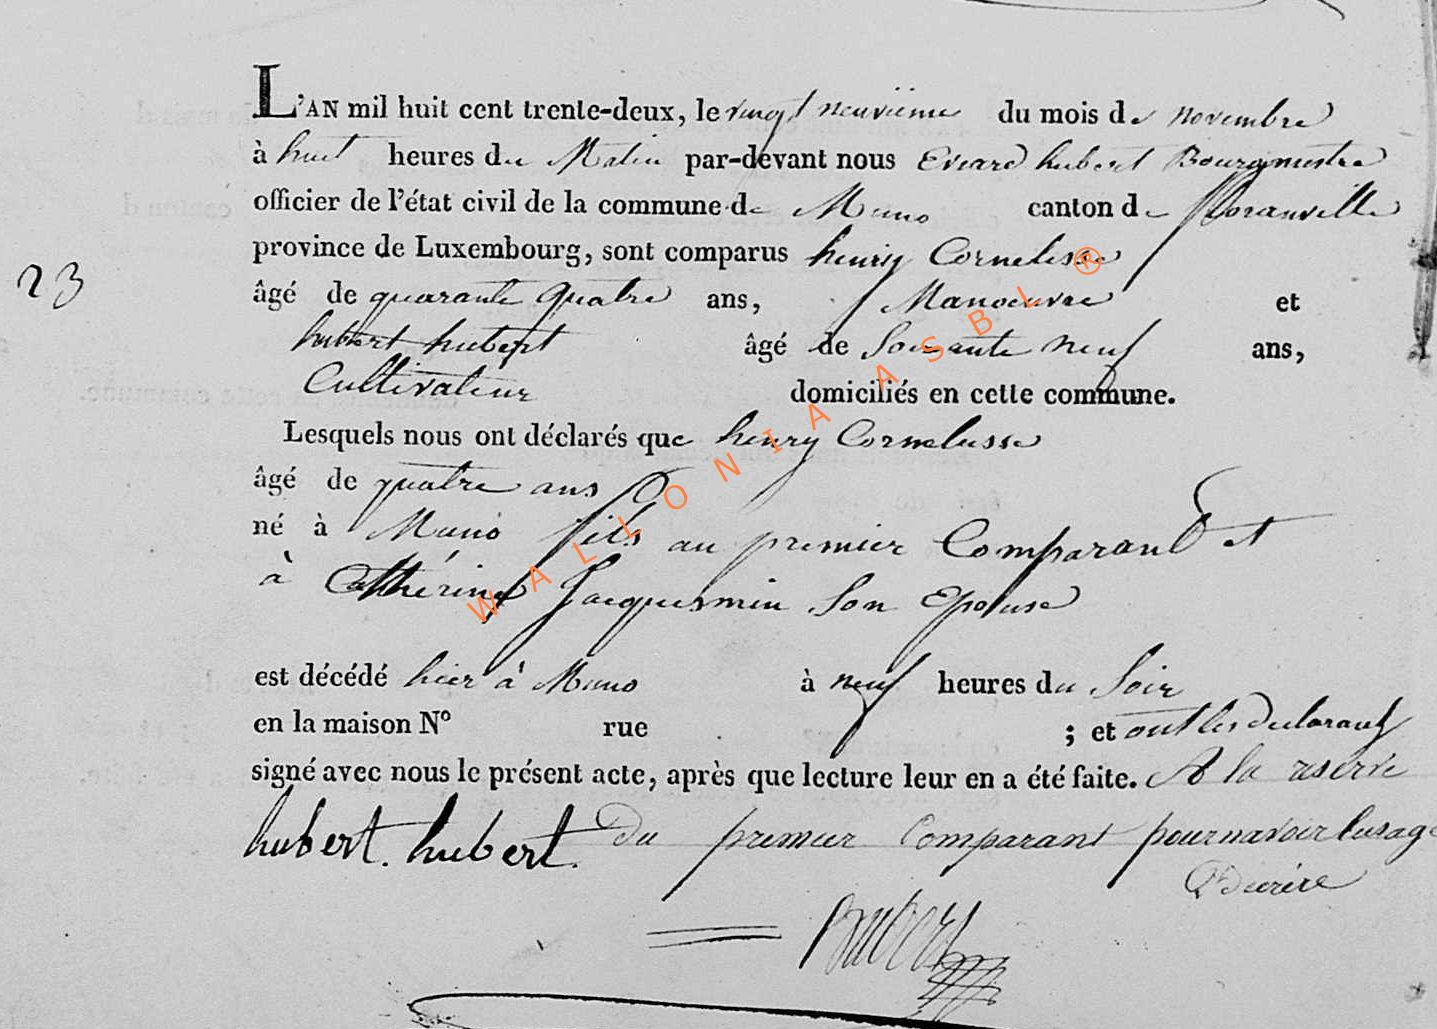 L'AN mil huit cent trente-deux, le vingt neuvième du mois de novembre
à huit heures du Matin par-devant nous Evrard hubert Bourgmestre
officier de l'état civil de la commune de Muno canton de floranville
province de Luxembourg, sont comparus henry Cornelisse
23
âgé de quarante quatre ans, Manoeuvre et
hubert hubert âgé de Soixante neuf ans,
Cultivateur domiciliés en cette commune.
Lesquels nous ont déclarés que henry Cornelusse
âgé de quatre ans
né à Muno fils au premier Comparant et
à Cathérine Jacquemin Son Epouse
est décédé hier à Muno à neuf heures du Soir
en la maison N° rue ; et ont les declarants
signé avec nous le présent acte, après que lecture leur en a été faite. A la reserve
hubert. hubert. Du premier Comparant pour navoir lusage
Decrire
hubert
WALLONIA ASBL ®